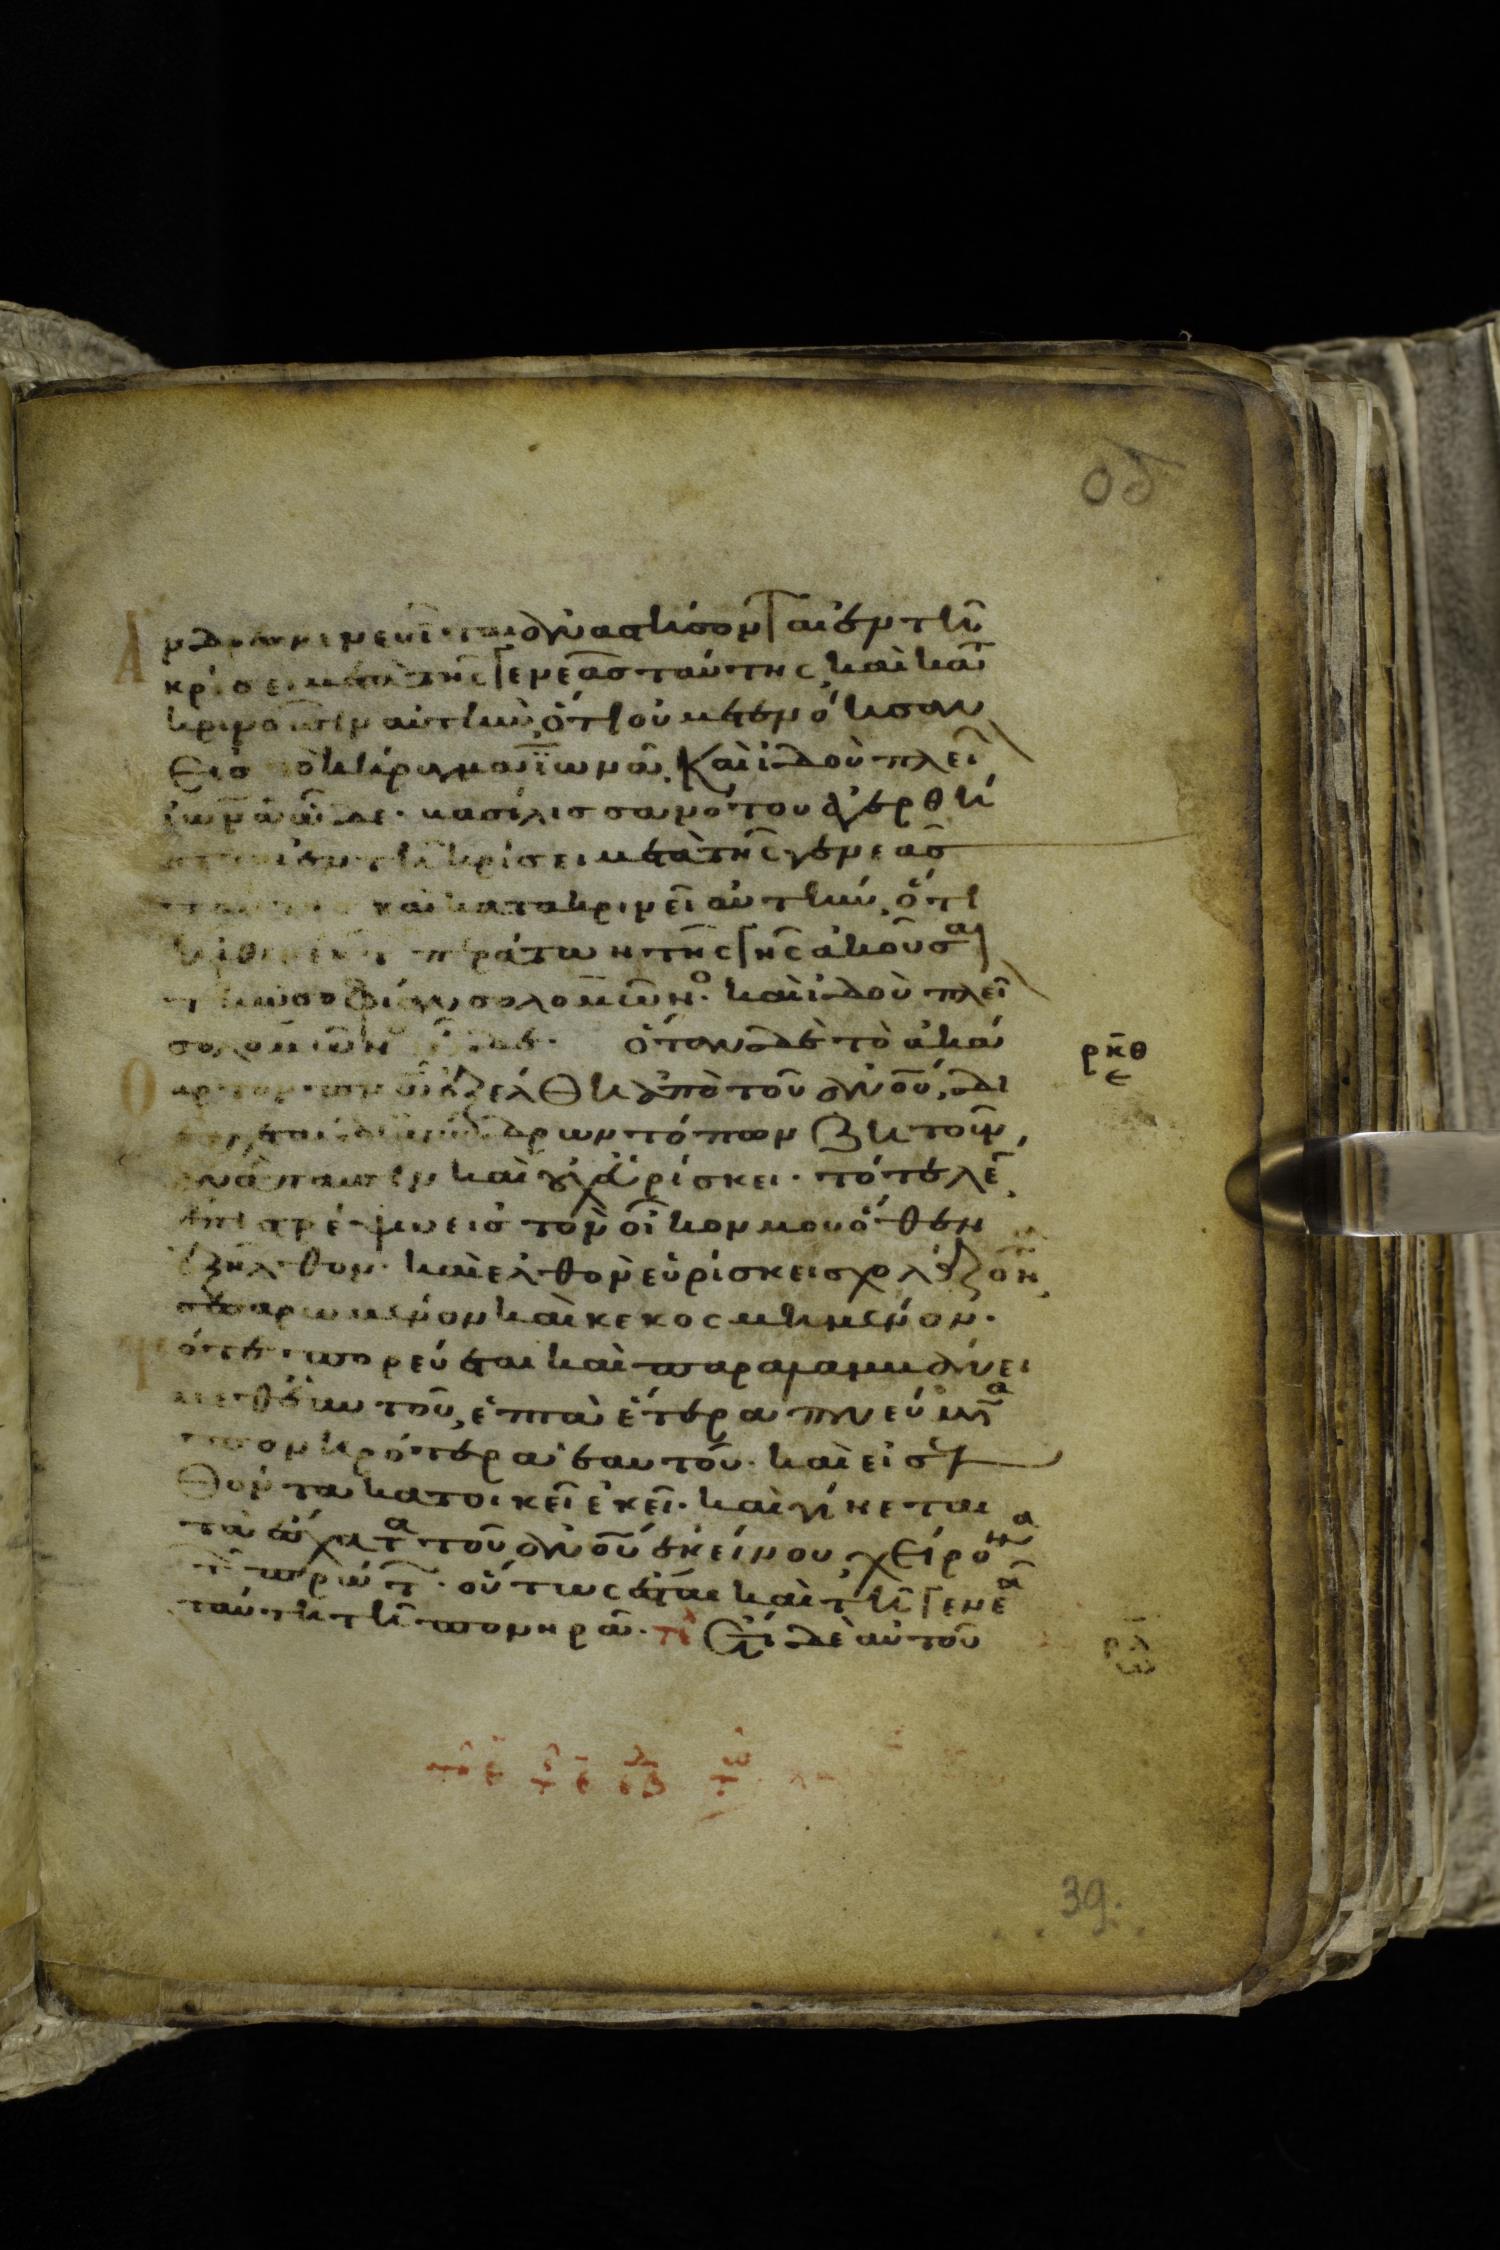 οδ
Ἄνδρες νινευῖται ἀναστήσοντ αι ἐν τῆ
κρίσει μετὰ τῆς γενεᾶς ταύτης, καὶ κατα
κρινοῦσιν αὐτὴν, ὅτι οὐ μετενόησαν
εἰς τὸ κήρυγμα ἰωνᾶ. Καὶ ἰδοὺ πλεῖ
ἰωνᾶ ὧδε. βασίλισσα νότου ἐγερθή
σεται ἐν τῆ κρίσει μετὰ τῆς γενεᾶς
ταύτης καὶ κατακρινεῖ αὐτὴν, ὅτι
ἦλθεν ἐκ τῶν περάτων τῆς γῆς ἀκοῦσαι
τὴν σοφίαν σολομῶνο. καὶ ἰδοὺ πλεῖ
σολομῶνο ὧδε. ὅταν δὲ τὸ ἀκά
θαρτον πνα ἐξέλθη ἀπὸ τοῦ ἀνου, δι
έρχεται δι ἀνύδρων τόπων ζητοῦν
ἀνάπαυσιν καὶ οὐχ εὑρίσκει. τότε λέ
ἐπιστρέψω εἰς τὸν οἶκον μου ὅθεν
ἐξῆλθον. καὶ ἐλθὸν εὑρίσκει σχολάζον
σεσαρωμένον καὶ κεκοσμημένον.
Τότε πορεύεται καὶ παραλαμβάνει
μεθ ἑαυτοῦ, ἑπτὰ ἕτερα πνεύματα
πονηρότερα ἑαυτοῦ. καὶ εἰσελ
θόντα κατοικεῖ ἐκεῖ. καὶ γίνεται
τὰ ἔσχατα τοῦ ἀνου ἐκείνου χείρονα
τῶν πρώτων. οὕτως ἔσται καὶ τῆ γενεᾶ
ταύτη τῆ πονηρᾶ. Ἔτι δὲ αὐτοῦ
ρκθ
ε
39.